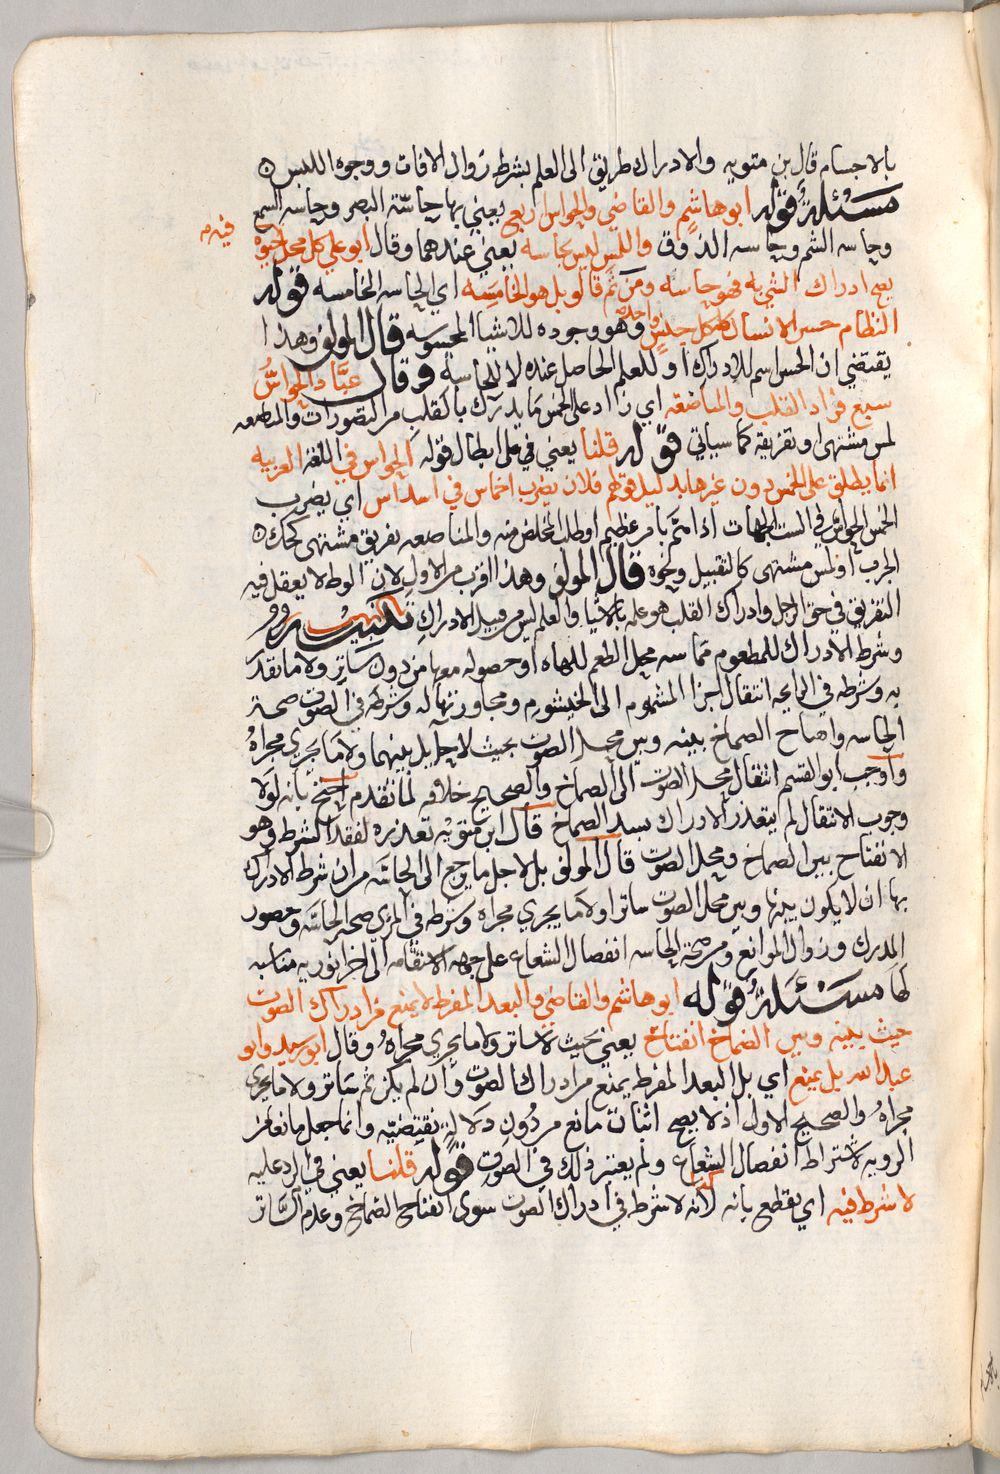 بالاجسام قال بن متويه والادراك طريق الى العلم بشرط زوال الافات ووجوه اللبس ه
مسئلة قوله ابو هاشم والقاضي والحواس اربع يعني بها حاسة البصر وحاسه السمع
وحاسه الشم وحاسه الذوق واللمس ليس بحاسه يعني عندهما وقال ابو علي كل محل حيوة
فيه م
يصح ادراك الشي به فهو حاسه ومن ثم قالو بل هو الخامسه اي الحاسه الخامسه قوله
النظام حس الانسان كل جنس واحد وهو وجوده للاشيا المحسوسه قال المولف وهذا
يقتضي ان الحس اسم للادراك او للعلم الحاصل عنده لا للحاسة وقال عباد الحواس
سبع فزاد القلب والمباضعه اي زاد على الخمس ما يدرك بالقلب من التصورات والمباضعه
لمس مشتهى او تفريقه كما سياتي قوله قلنا يعني في على ابطال قوله الحواس في اللغه العربيه
انما يطلق على الخمس دون غيرها بدليل قولهم فلان يضرب اخماس في اسداس اي يضرب
الخمس الحواس في الست الجهات اذا اهتم بامر عظيم او طلب المخلص منه والمباضعه تفريق مشتهى كحك ه
الجرب او لمس مشتهى كالتقبيل ونحوه قال المولف وهذا اقرب من الاول لان الوطء لا يعقل فيه
التفريق في حق الرجل وادراك القلب هو علمه بالاشيا والعلم ليس من قبيل الادراك تنبيه
وشرط الادراك للمطعوم مماسه محل الطعم للهاه او حصوله معها من دون ساتر ولا ما تقدر
به وشرطه في الرايحه انتقال اجزا المشموم الى الخيشوم ومجاورتها له وشرطه في الصوت صحة
الحاسه وانفتاح الصماخ بينه وبين محل الصوت بحيث لا حايل بينهما ولا ما يجري مجراه
واوجب ابو القسم انتقال محل الصوت الى الصماخ والصحيح خلافه لما تقدم احتج بانه لولا
وجوب الانتقال لم يتعذر الادراك بسد الصماخ قال ابن متويه تعذره لفقد الشرط وهو
الانفتاح بين الصماخ ومحل الصوت قال المولف بل لاجل ما يرجع الى الحاسه من ان شرط الادراك
بها ان لا يكون بينها وبين محل الصوت ساتر اولا ما يجري مجراه وشرطه في المرئ صحه الحاسه وحضور
المدرك وزوال الموانع ومن صحة الحاسه انفصال الشعاع على جهه الاستقامه الى اخر نوريه مناسبه
لها مسئلة قوله ابو هاشم والقاضي والبعد المفرط لا يمنع من ادراك الصوت
حيث بينه وبين الصماخ انفتاح يعني بحيث لا ساتر ولا ما يجري مجراه وقال ابو رشيد وابو
عبد الله بل يمنع اي بل البعد المفرط يمنع من ادراك الصوت وان لم يكن ثم ساتر ولا ما يجري
مجراه والصحيح الاول اذ لا يصح اثبات مانع من دون دلاله تقتضيه وانما جعل مانعا من
الرويه لاشتراط انفصال الشعاع ولم يعتبر ذلك في الصوت قوله قلنا يعني في الرد عليه
لا شرط فيه اي يقطع بانه لانه لا شرط في ادراك الصوت سوى انفتاح الصماخ وعدم الساتر